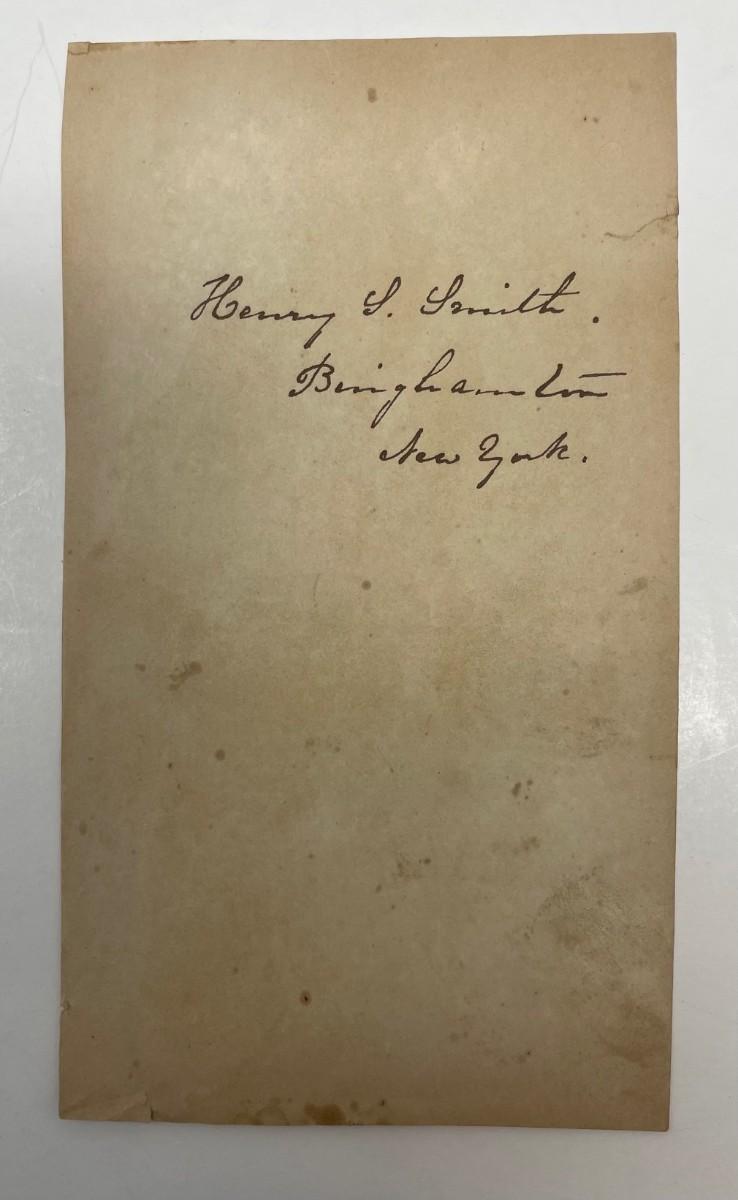 Henry S. Smith.
Binghamton
New York.